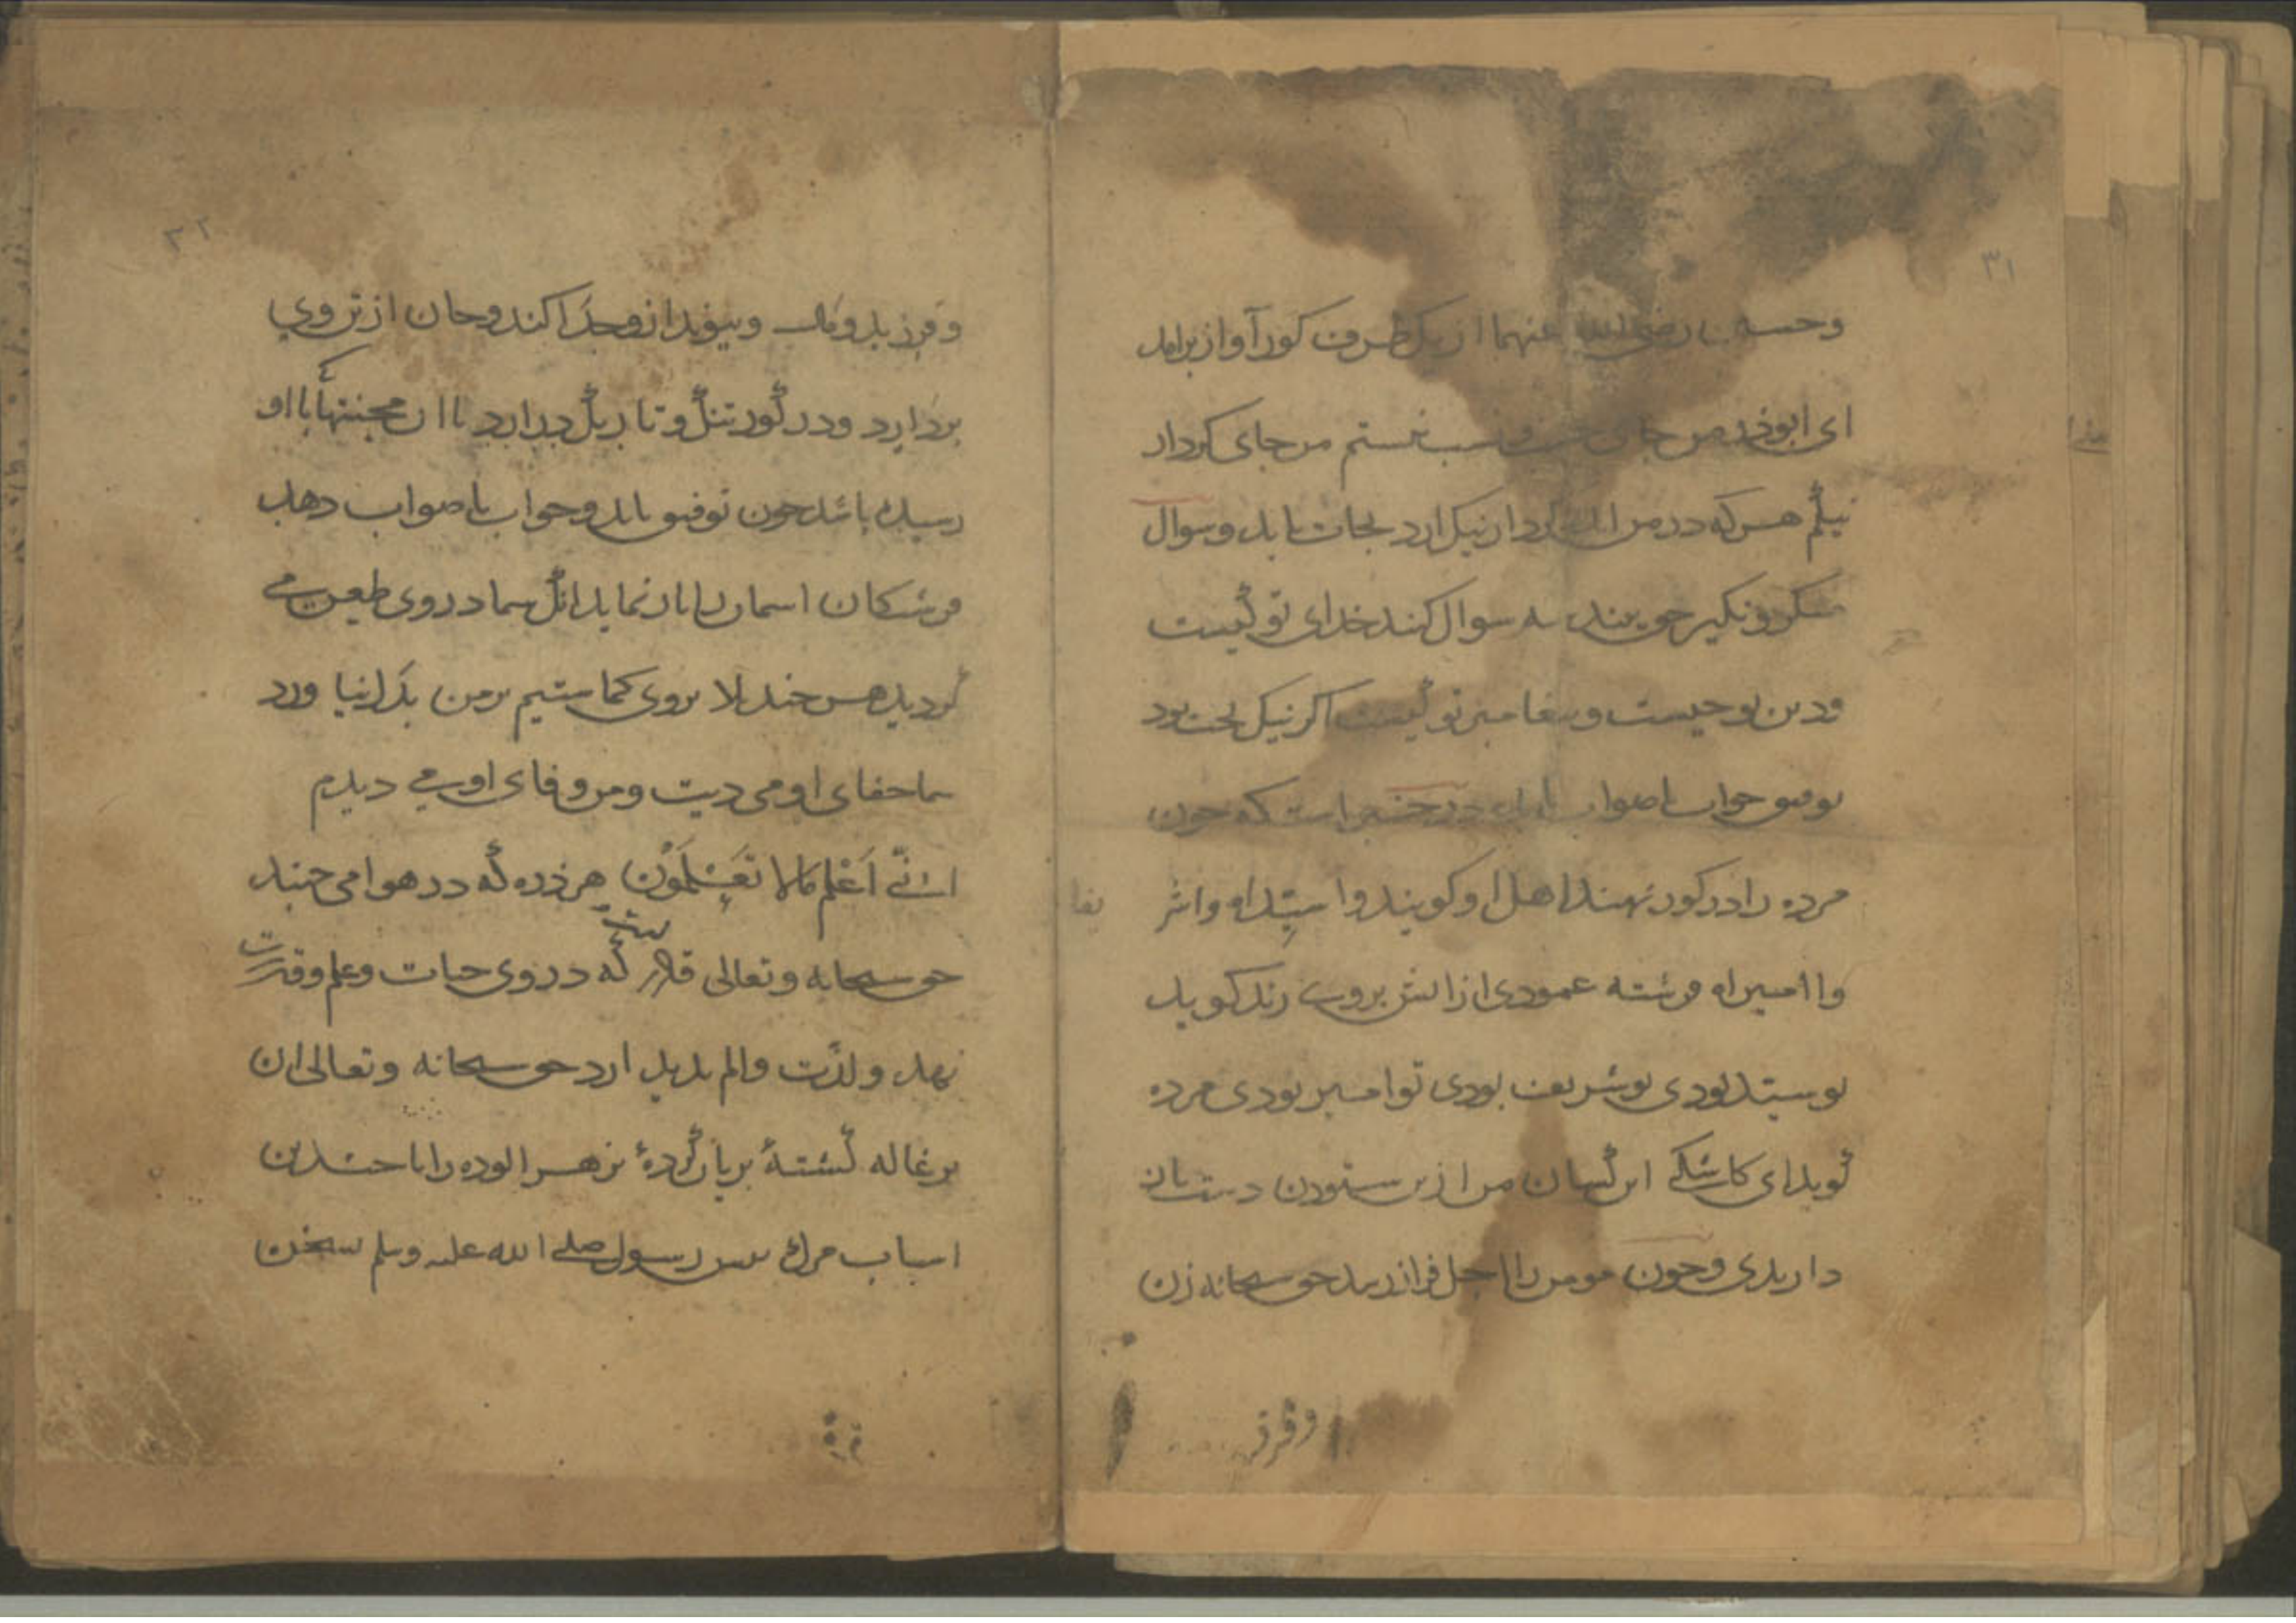 ۳۱
وحسین رضی الله عنهما از یک طرف کور آواز برامد
ای ابوذر من جای حسب ونسب نیستم من جای کردار
نیکم هرکه در من اید کردار نیک ارد نجات یابد وسوال
منکر ونکیر حق بیند سه سوال کنند خدای تو کیست
ودین تو چیست وپیغامبر تو کیست اکر نیک بخت بود
توفیق جواب باصواب یابد در خبر است که چون
مرده را در کور نهند اهل او کویند وا سیداه واشر
یفا
وا امیراه فرشته عمودی از اتش بر وی زند کوید
تو سید بودی تو شریف بودی تو امیر بودی مرده
کوید ای کاشکی این کسان من از من ستودن دست باز
دارندی وچون مومن را اجل فراز رسد حق سبحانه زن
وفرز
۳۲
وفرزند ومال وپیوند از وجدا کند وجان از تن وی
بردارد ودر کور تنک وتاریک در ارد تا ان محنتها با او
رسیده باشد چون توفیق یابد وجواب باصواب دهد
فرشتکان اسمان را باز نماید انک شما در وی طعن می
کردید هر چند بلا بروی کماشتیم بر من بدل نیاورد
شما جفای او می دیدیت ومن وفای او می دیدم
انی اعلم مالا تعلمون هر ذره که در هوا می جنبد
حق سبحانه وتعالی قادر است که در وی حیات وعلم وقدرت
نهد ولذت والم پدید ارد حق سبحانه وتعالی ان
بزغاله کشتهٔ بریان کردهٔ بزهر الوده را با چندین
اسباب مرک پیش رسول صلی الله علیه وسلم سخن